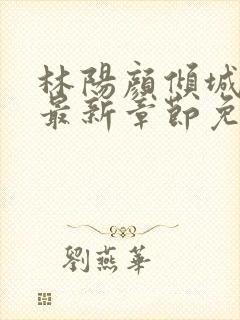 林陽顏傾城
最新章節免
劉燕華